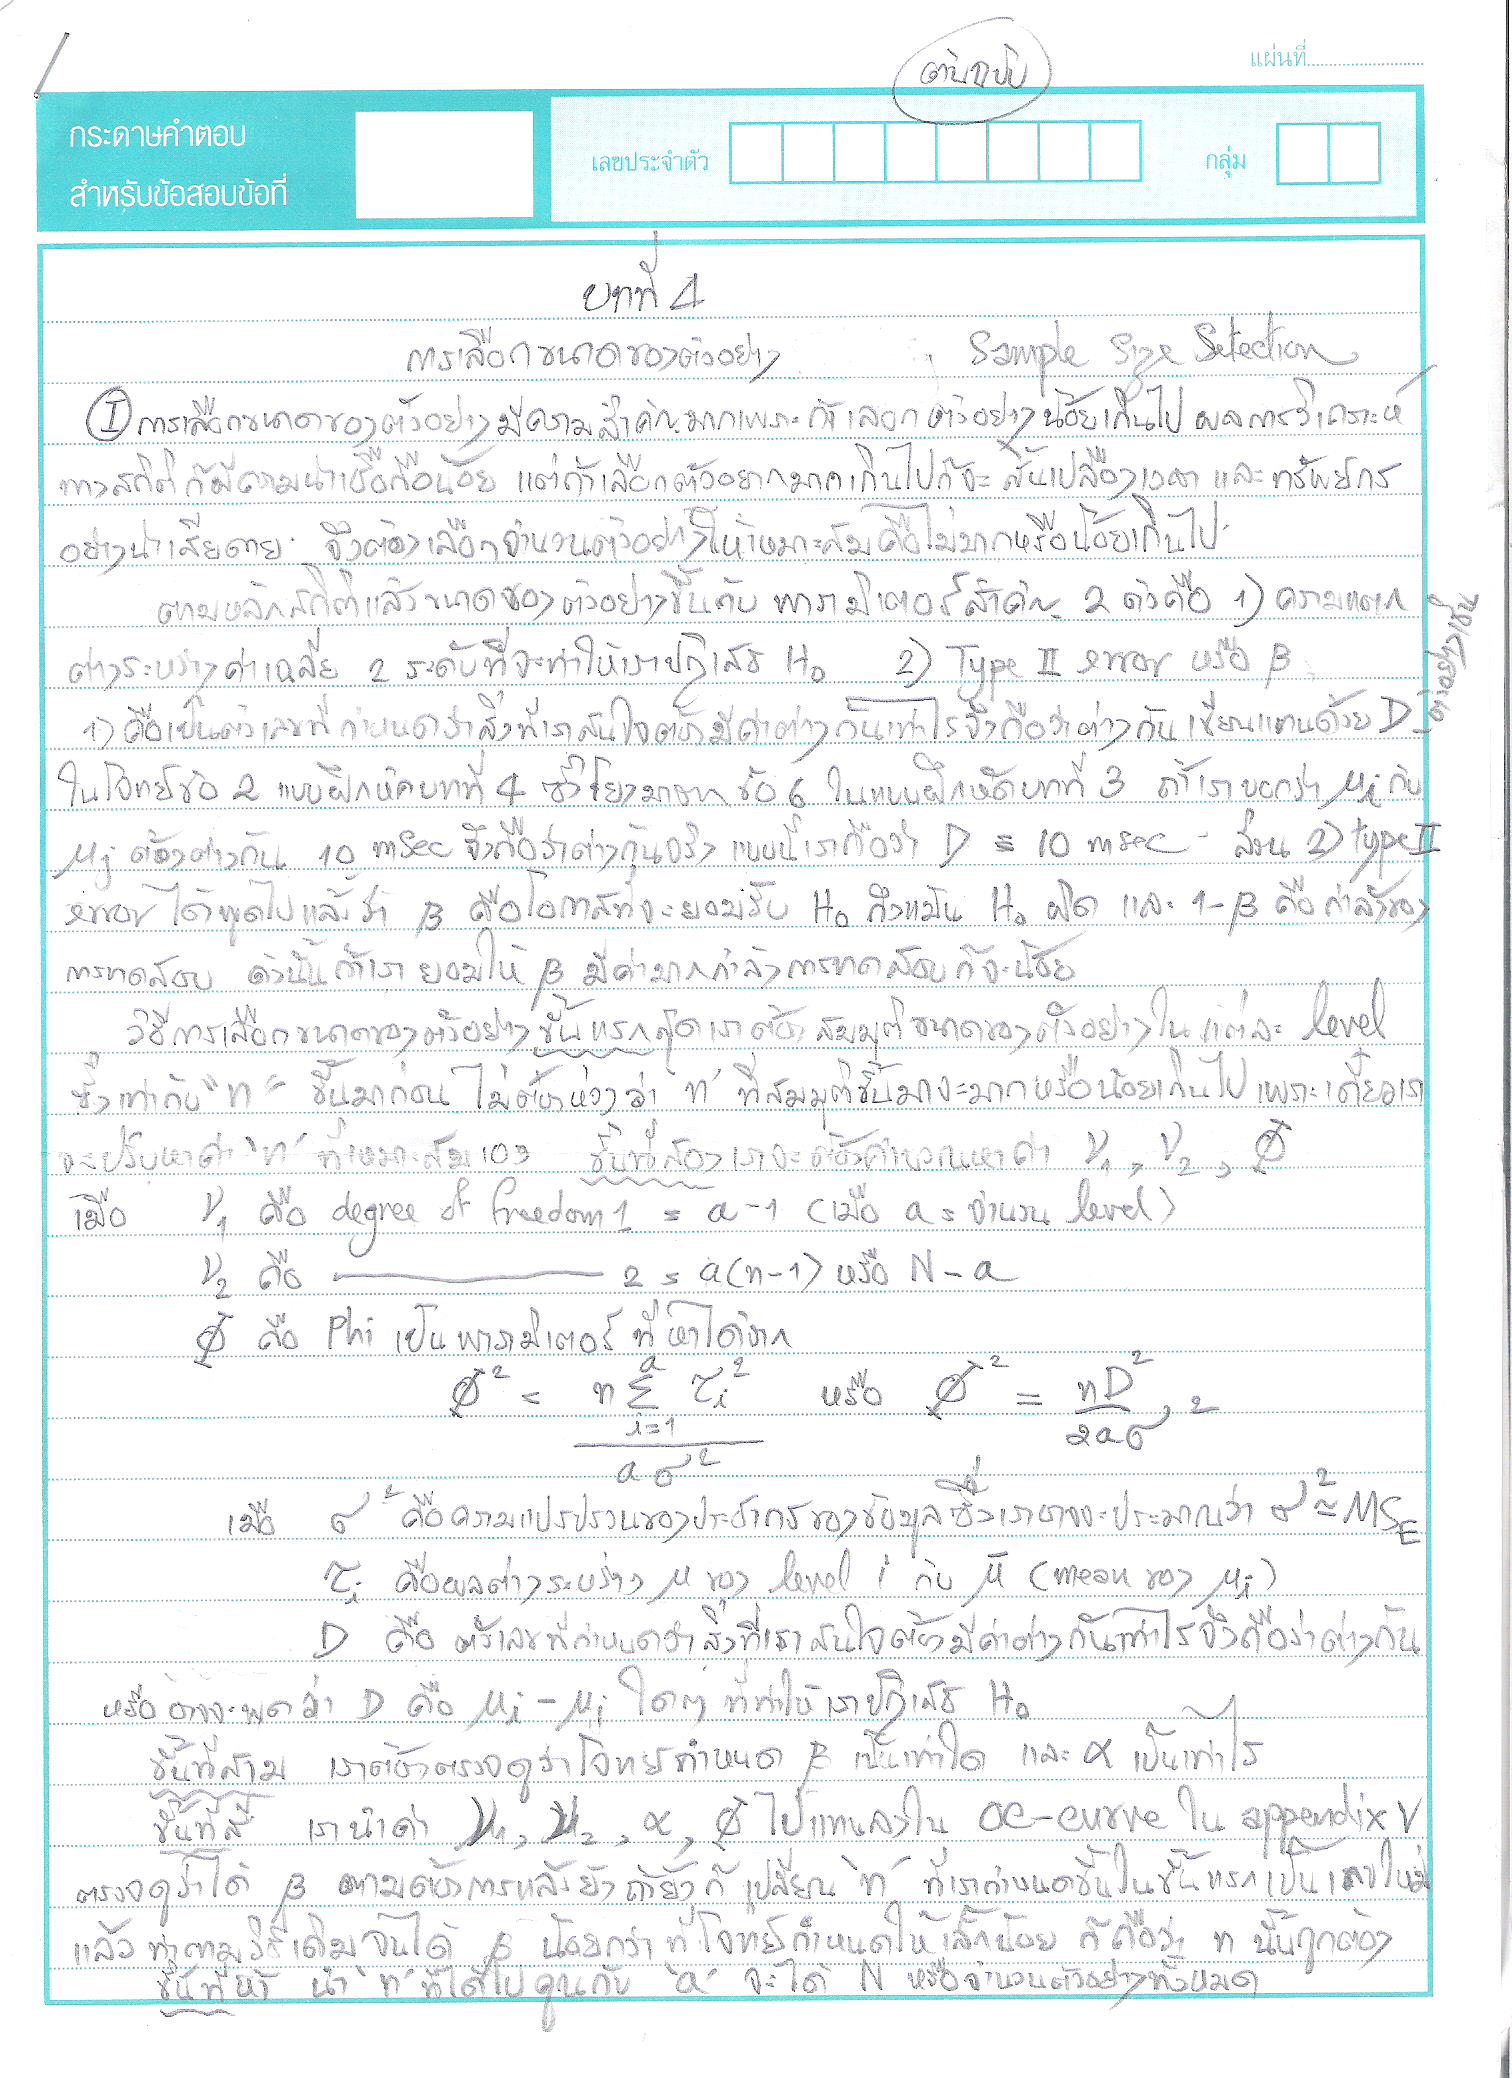 ต้นฉบับ
แผ่นที่
กระดาษคำตอบ
สำหรับข้อสอบข้อที่
เลขประจำตัว
กลุ่ม
บทที่ 4
การเลือกขนาดของตัวอย่าง Sample Size Selection
I การเลือกขนาดของตัวอย่างมีความสำคัญมากเพราะถ้าเลือกตัวอย่างน้อยเกินไป ผลการวิเคราะห์
ทางสถิติก็มีความน่าเชื่อถือน้อย แต่ถ้าเลือกตัวอย่างมากเกินไปก็จะสิ้นเปลืองเวลา และทรัพยากร
อย่างน่าเสียดาย จึงต้องเลือกจำนวนตัวอย่างให้เหมาะสมคือไม่มากหรือน้อยเกินไป
ตามหลักสถิติแล้วขนาดของตัวอย่างขึ้นกับ พารามิเตอร์สำคัญ 2 ตัวคือ 1) ความแตก
ต่างระหว่างค่าเฉลี่ย 2 ระดับที่จะทำให้เราปฏิเสธ H₀ 2) Type II error หรือ β
1) คือเป็นตัวเลขที่กำหนดว่าสิ่งที่เราสนใจต้องมีค่าต่างกันเท่าไรจึงถือว่าต่างกัน เขียนแทนด้วย D ตัวอย่างเช่น
ในโจทย์ข้อ 2 แบบฝึกหัดบทที่ 4 ซึ่งโยงมาจาก ข้อ 6 ในแบบฝึกหัดบทที่ 3 ถ้าเราบอกว่า μi กับ
μj ต้องต่างกัน 10 msec จึงถือว่าต่างกันจริง แบบนี้เราถือว่า D = 10 msec ส่วน 2) type II
error ได้พูดไปแล้วว่า β คือโอกาสที่จะยอมรับ H₀ ถึงแม้น H₀ ผิด และ 1-β คือกำลังของ
การทดสอบ ดังนั้นถ้าเรายอมให้ β มีค่ามากกำลังการทดสอบก็จะน้อย
วิธีการเลือกขนาดของตัวอย่างขั้นแรกสุดเราต้องสมมุติขนาดของตัวอย่างในแต่ละ level
ซึ่งเท่ากับ "n" ขึ้นมาก่อน ไม่ต้องห่วงว่า "n" ที่สมมุติขึ้นมาจะมากหรือน้อยเกินไป เพราะเดี๋ยวเรา
จะปรับหาค่า "n" ที่เหมาะสมเอง ขั้นที่สองเราจะต้องคำนวณหาค่า ν₁, ν₂, Φ
เมื่อ ν₁ คือ degree of freedom 1 = a-1 (เมื่อ a = จำนวน level)
ν₂ คือ ———— 2 = a(n-1) หรือ N-a
Φ คือ Phi เป็นพารามิเตอร์ ที่หาได้จาก
Φ² = n Σ(i=1..a) τi² / aσ² หรือ Φ² = nD² / 2aσ²
เมื่อ σ² คือความแปรปรวนของประชากรของข้อมูลซึ่งเราอาจจะประมาณว่า σ² ≈ MSE
τi คือผลต่างระหว่าง μ ของ level i กับ μ̄ (mean ของ μi)
D คือ ตัวเลขที่กำหนดว่าสิ่งที่เราสนใจต้องมีค่าต่างกันเท่าไรจึงถือว่าต่างกัน
หรืออาจจะพูดว่า D คือ μi - μj ใดๆ ที่ทำให้เราปฏิเสธ H₀
ขั้นที่สาม เราต้องตรวจดูว่าโจทย์กำหนด β เป็นเท่าใด และ α เป็นเท่าไร
ขั้นที่สี่ เรานำค่า ν₁, ν₂, α, Φ ไปแทนลงใน OC-curve ใน appendix V
ตรวจดูว่าได้ β ตามต้องการแล้วยัง ถ้ายังก็เปลี่ยน "n" ที่เรากำหนดขึ้นในขั้นแรกเป็นเลขใหม่
แล้วทำตามวิธีเดิมจนได้ β น้อยกว่าที่โจทย์กำหนดให้เล็กน้อย ก็ถือว่า n นั้นถูกต้อง
ขั้นที่ห้า นำ "n" ที่ได้ไปคูณกับ "a" จะได้ N หรือจำนวนตัวอย่างทั้งหมด